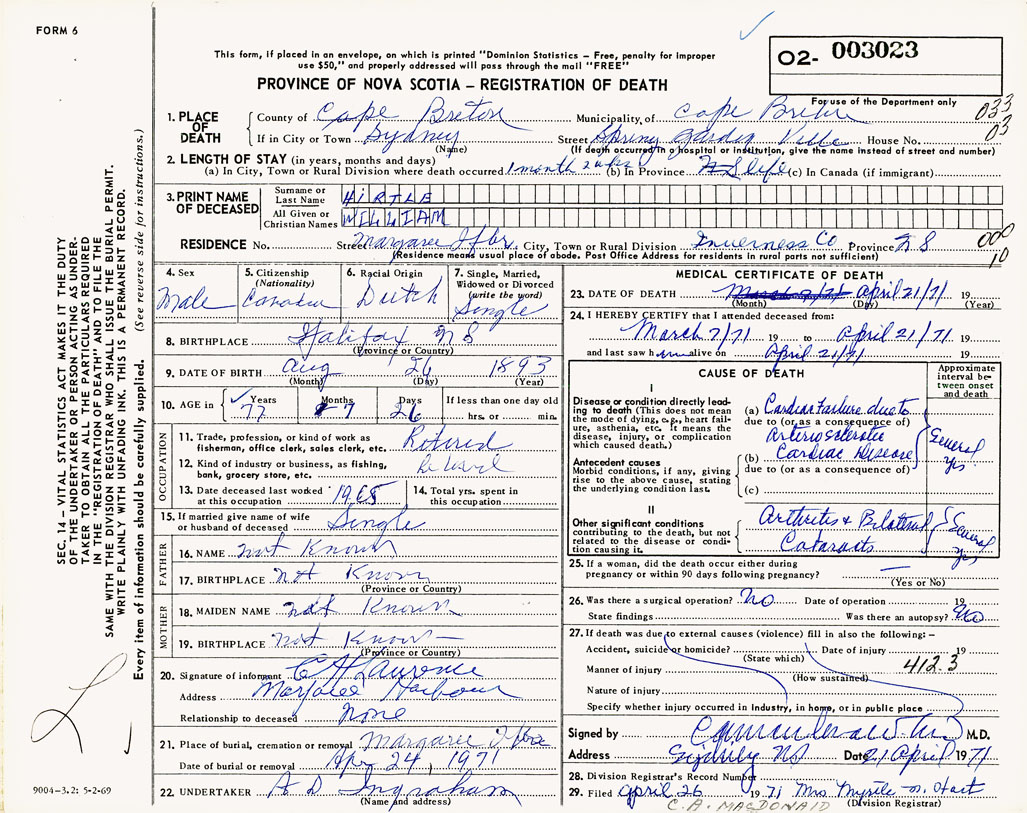 FORM 6
This form, if placed in an envelope, on which is printed "Dominion Statistics – Free, penalty for improper
use $50," and properly addressed will pass through the mail "FREE"
PROVINCE OF NOVA SCOTIA – REGISTRATION OF DEATH
02- 003023
For use of the Department only
033
03
1. PLACE OF DEATH
County of Cape Breton Municipality of Cape Breton
If in City or Town Sydney Street Spring Garden Villa House No.
(Name) (If death occurred in a hospital or institution, give the name instead of street and number)
2. LENGTH OF STAY (in years, months and days)
(a) In City, Town or Rural Division where death occurred 1 month 2 wks (b) In Province N S life (c) In Canada (if immigrant)
3. PRINT NAME OF DECEASED
Surname or Last Name HIRTLE
All Given or Christian Names WILLIAM
RESIDENCE No. Street Margaree Hbr. City, Town or Rural Division Inverness Co Province N S
000
10
(Residence means usual place of abode. Post Office Address for residents in rural parts not sufficient)
4. Sex
Male
5. Citizenship
(Nationality)
Canadian
6. Racial Origin
Dutch
7. Single, Married,
Widowed or Divorced
(write the word)
Single
8. BIRTHPLACE Halifax N S
(Province or Country)
9. DATE OF BIRTH Aug 26 1893
(Month) (Day) (Year)
10. AGE in
Years 77
Months 7
Days 26
If less than one day old
hrs. or min.
OCCUPATION
11. Trade, profession, or kind of work as
fisherman, office clerk, sales clerk, etc. Retired
12. Kind of industry or business, as fishing,
bank, grocery store, etc.
13. Date deceased last worked
at this occupation 1965
14. Total yrs. spent in
this occupation
15. If married give name of wife
or husband of deceased Single
FATHER
16. NAME not Known
17. BIRTHPLACE not Known
(Province or Country)
MOTHER
18. MAIDEN NAME not Known
19. BIRTHPLACE not Known
(Province or Country)
20. Signature of informant C H Laurence
Address Margaree Harbour
Relationship to deceased None
21. Place of burial, cremation or removal Margaree Hbr
Date of burial or removal Apr 24, 1971
22. UNDERTAKER A D Ingraham
(Name and address)
MEDICAL CERTIFICATE OF DEATH
23. DATE OF DEATH April 21/71 19
(Month) (Day) (Year)
24. I HEREBY CERTIFY that I attended deceased from:
March 7/71 19 to April 21/71 19
and last saw him alive on April 21/71 19
CAUSE OF DEATH
Approximate
interval be-
tween onset
and death
I
Disease or condition directly lead-
ing to death (This does not mean
the mode of dying, e.g., heart fail-
ure, asthenia, etc. It means the
disease, injury, or complication
which caused death.)
(a) Cardiac failure due to
due to (or as a consequence of)
Arteriosclerotic
(b) Cardiac Disease
Several
yrs
Antecedent causes
Morbid conditions, if any, giving
rise to the above cause, stating
the underlying condition last.
due to (or as a consequence of)
(c)
II
Other significant conditions
contributing to the death, but not
related to the disease or condi-
tion causing it.
Arthritis & Bilateral
Cataracts
Several
yrs
25. If a woman, did the death occur either during
pregnancy or within 90 days following pregnancy? –
(Yes or No)
26. Was there a surgical operation? No Date of operation 19
State findings Was there an autopsy? No
27. If death was due to external causes (violence) fill in also the following:–
Accident, suicide or homicide? Date of injury 19
(State which)
412.3
Manner of injury
(How sustained)
Nature of injury
Specify whether injury occurred in industry, in home, or in public place
Signed by M.D.
Address Sydney NS Date 21 April 1971
28. Division Registrar's Record Number
29. Filed April 26 1971 Mrs Myrtle M. Hart
C. A. MACDONALD (Division Registrar)
SEC. 14 – VITAL STATISTICS ACT MAKES IT THE DUTY
OF THE UNDERTAKER OR PERSON ACTING AS UNDER-
TAKER TO OBTAIN ALL THE PARTICULARS REQUIRED
IN THE "REGISTRATION OF DEATH" AND TO FILE THE
SAME WITH THE DIVISION REGISTRAR WHO SHALL ISSUE THE BURIAL PERMIT.
WRITE PLAINLY WITH UNFADING INK. THIS IS A PERMANENT RECORD.
Every item of information should be carefully supplied. (See reverse side for instructions.)
9004-3.2: 5-2-69